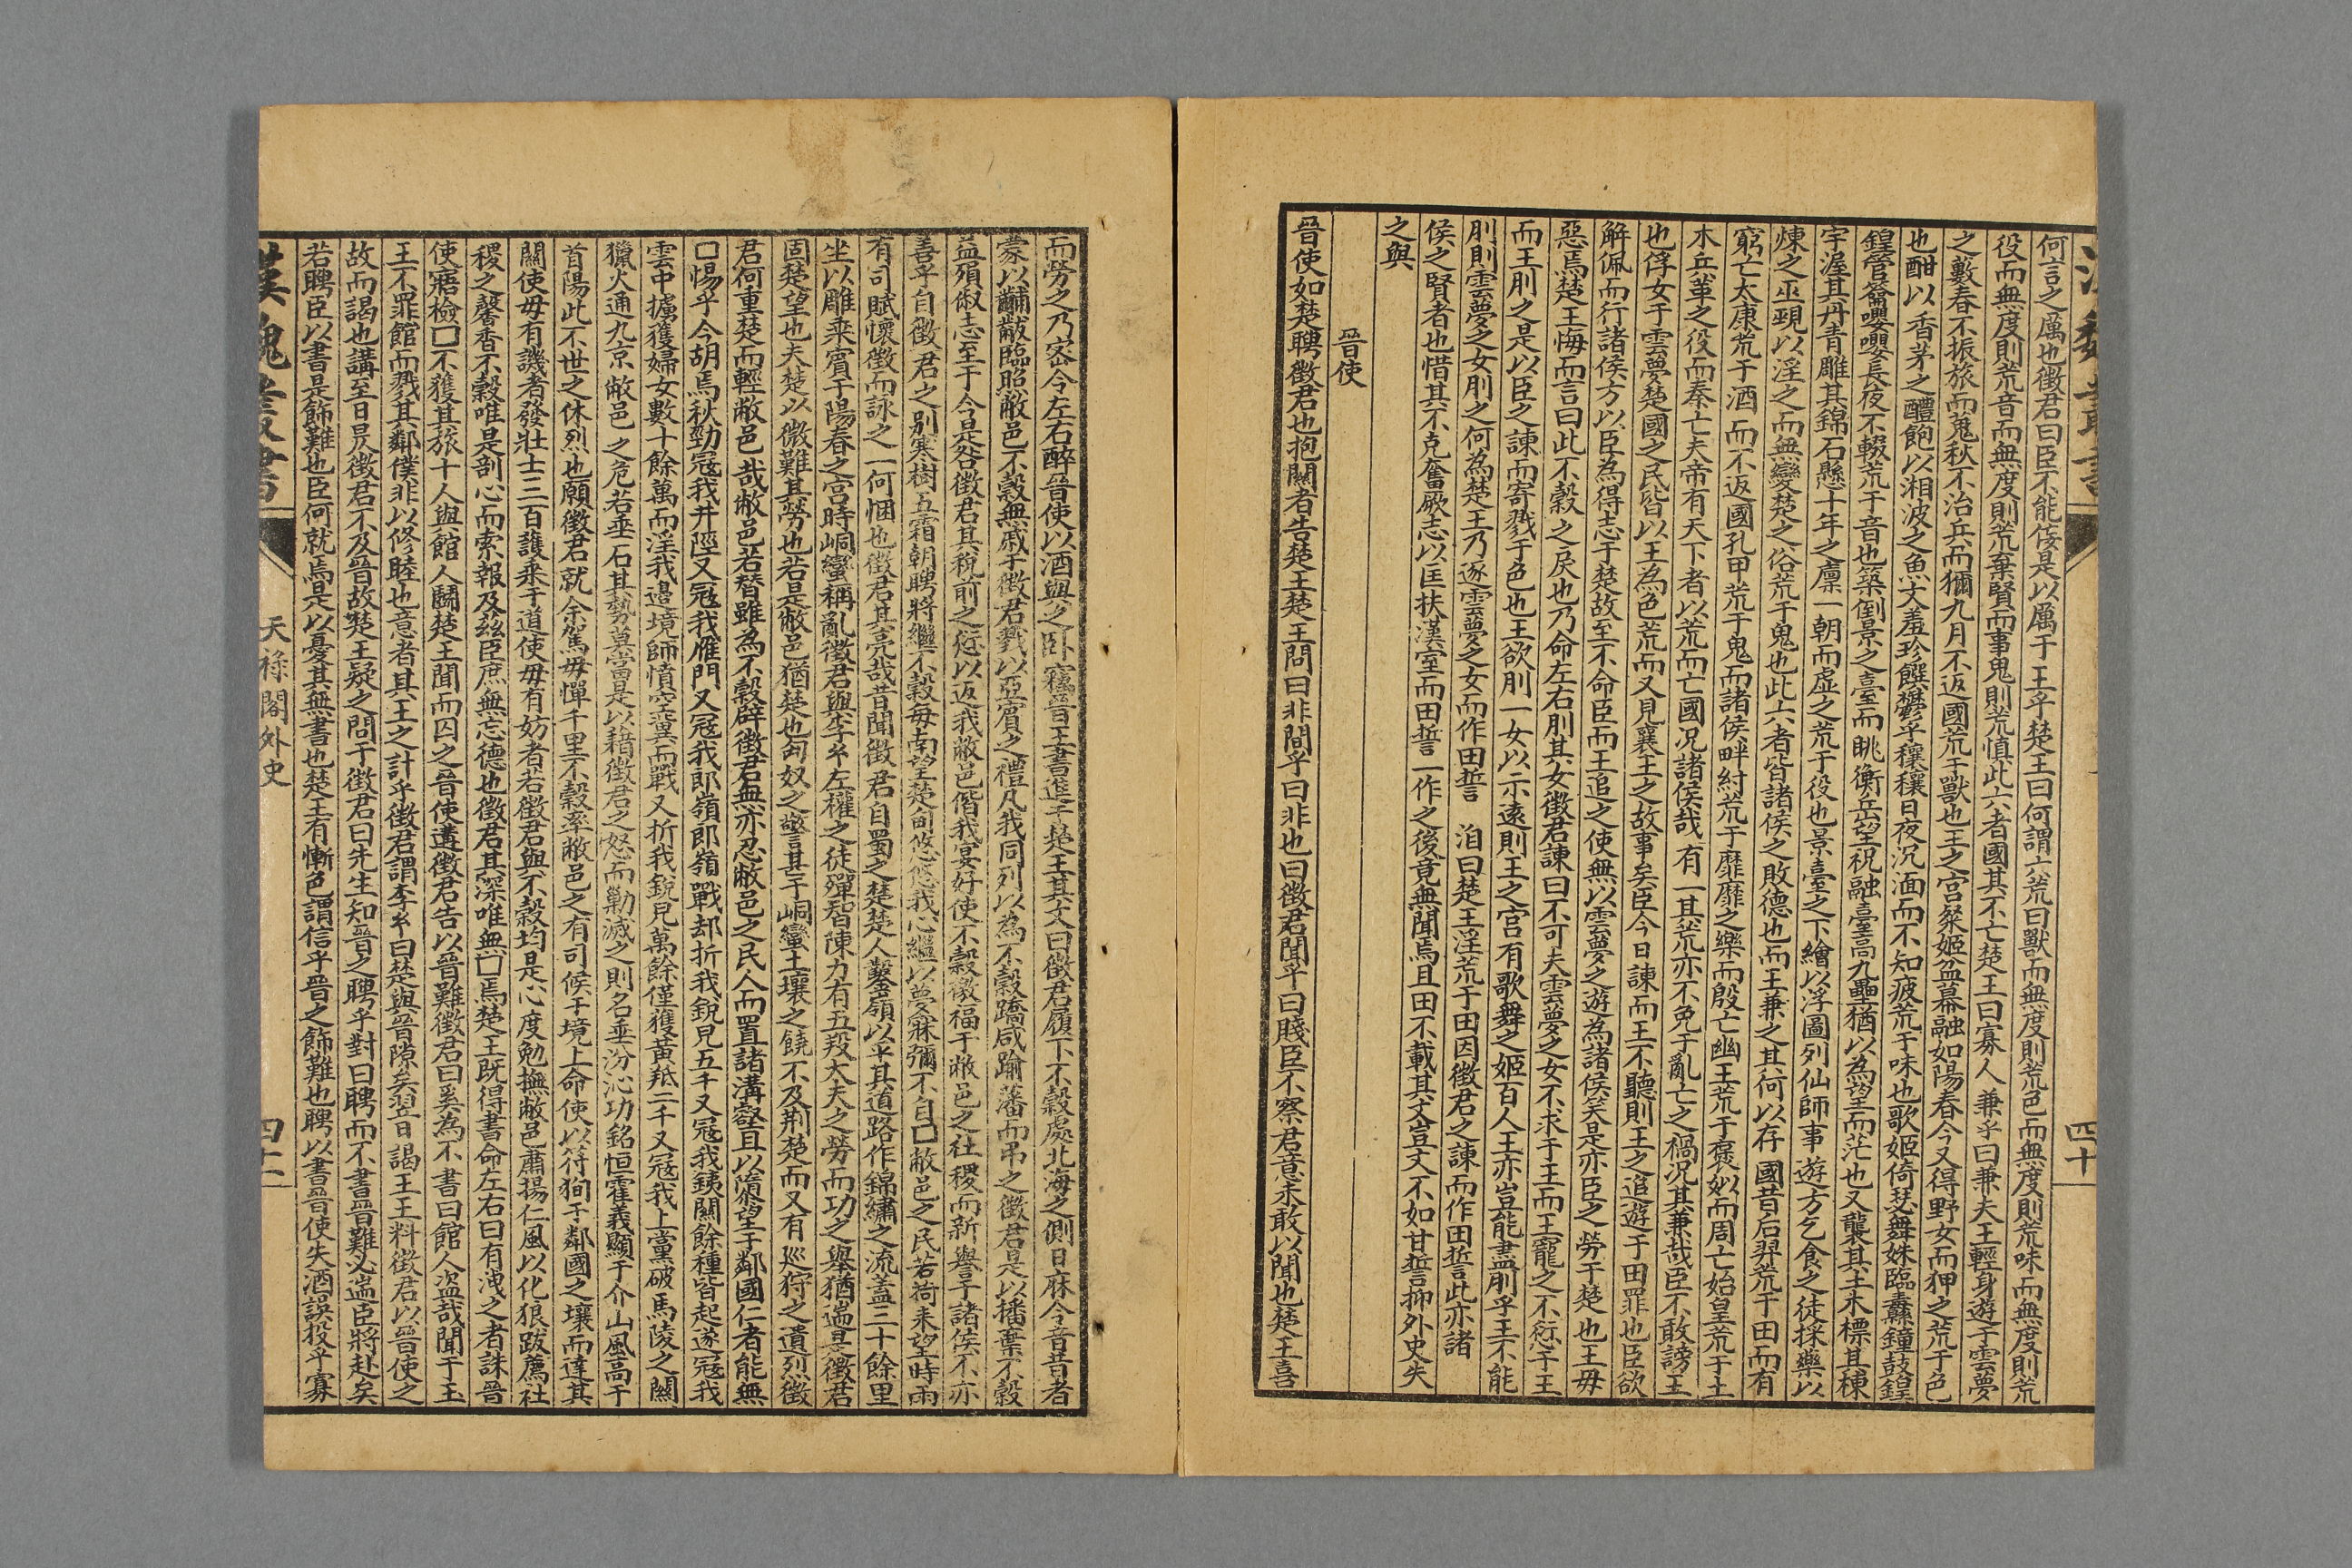 何言之厲也徵君曰臣不能佞是以厲于王乎楚王曰何謂六荒曰獸而無度則荒色而無度則荒味而無度則荒
役而無度則荒音而無度則荒棄賢而事鬼則荒慎此六者國其不亡楚王曰寡人兼乎曰兼夫王輕身遊于雲夢
之藪春不振旅而蒐秋不治兵而獮九月不返國荒于獸也王之宮粲姬盆幕融如陽春今又得野女而狎之荒于色
也酣以香茅之醴飽以湘波之魚大羞珍饌鬱乎穰穰日夜沉湎而不知疲荒于味也歌姬倚瑟舞姝臨纛鐘鼓鍠
鍠管籥嚶嚶長夜不輟荒于音也築倒景之臺而眺衡岳望祝融臺高九壘猶以為望而茫也又襲其土木標其棟
宇渥其丹青雕其錦石懸十年之廩一朝而虛之荒于役也景臺之下繪以浮圖列仙師事遊方乞食之徒採藥以
煉之巫覡以淫之而無變楚之俗荒于鬼也此六者皆諸侯之敗德也而王兼之其何以存國昔后羿荒于田而有
窮亡太康荒于酒而不返國孔甲荒于鬼而諸侯畔紂荒于靡靡之樂而殷亡幽王荒于褒姒而周亡始皇荒于土
木丘革之役而秦亡夫帝有天下者以荒而亡國况諸侯哉有一其荒亦不免于亂亡之禍况其兼哉臣不敢謗王
也俘女于雲夢楚國之民皆以王為色荒而又見襄王之故事矣臣今日諫而王不聽則王之追遊于田罪也臣欲
解佩而行諸侯方以臣為得志于楚故至不命臣而王追之使無以雲夢之遊為諸侯笑是亦臣之勞于楚也王毋
惡焉楚王悔而言曰此不穀之戾也乃命左右刖其女徵君諫曰不可夫雲夢之女不求于王而王寵之不愆于王
而王刖之是以臣之諫而寄戮于色也王欲刖一女以示遠則王之宮有歌舞之姬百人王亦豈能盡刖乎王不能
刖則雲夢之女刖之何為楚王乃逐雲夢之女而作田誓　洎曰楚王淫荒于田因徵君之諫而作田誓此亦諸
侯之賢者也惜其不克奮厥志以匡扶漢室而田誓一作之後竟無聞焉且田不載其文豈文不如甘誓抑外史失
之與
晉使
晉使如楚聘徵君也抱關者告楚王楚王問曰非間乎曰非也曰徵君聞乎曰賤臣不察君意未敢以聞也楚王喜
四十
而勞之乃客令左右醉晉使以酒與之卧竊晉王書進于楚王其文曰徵君履下不穀處北海之側日麻令音昔者
蒙以黼黻臨昭敝邑不穀無戚于徵君戮以亞賓之禮凡我同列以為不穀蹻咸踰藩而弔之徵君是以播棄不穀
益殞俶志至于今是咎徵君其稅前之愆以返我敝邑偕我宴好使不穀徼福于敝邑之社稷而新譽于諸侯不亦
善乎自徵君之別寒樹五霜朝聘將繼不穀每南望楚雲悠悠我心繼以夢寐彌不自□敝邑之民若荷耒望時雨
有司賦懷徵而詠之一何悃也徵君其亮哉昔聞徵君自蜀之楚楚人鑿嶺以平其道路作錦繡之流蓋三十餘里
坐以雕乘賓于陽春之宮時峒蠻稱亂徵君與李幺左權之徒殫智陳力有五羖大夫之勞而功之舉猶遄是徵君
固楚望也夫楚以微難其勞也若是敝邑猶楚也匈奴之警甚于峒蠻土壤之饒不及荆楚而又有巡狩之遺烈徵
君何重楚而輕敝邑哉敝邑若替雖為不穀辟徵君無亦忍敝邑之民人而置諸溝壑且以隳望于鄰國仁者能無
□惕乎今胡馬秋勁冦我井陘又冦我雁門又冦我郎嶺郎嶺戰却折我銳兒五千又冦我鋏關餘種皆起遂冦我
雲中擄獲婦女數十餘萬而淫我邊境師憤空冀而戰又折我銳兒萬餘僅獲黃羝二千又冦我上黨破馬陵之關
獵火通九京敝邑之危若垂石其勢莫當是以藉徵君之怒而勦滅之則名垂汾沁功銘恒霍義顯于介山風高于
首陽此不世之休烈也願徵君就余駕毋憚千里不穀率敝邑之有司候于境上命使以符狥于鄰國之壤而達其
關使毋有譏者發壯士三百護乘于道使毋有妨者若徵君與不穀均是心度勉撫敝邑肅揚仁風以化狼跋薦社
稷之馨香不穀唯是剖心而索報及茲臣庶無忘德也徵君其深唯無□焉楚王既得書命左右曰有洩之者誅晉
使寤檢□不獲其旅十人與館人鬭楚王聞而囚之晉使遘徵君告以晉難徵君曰奚為不書曰館人盜哉聞于王
王不罪館而戮其鄰僕非以修睦也意者其王之計乎徵君謂李幺曰楚與晉隙矣翌日謁王王料徵君以晉使之
故而謁也講至日昃徵君不及晉故楚王疑之問于徵君曰先生知晉之聘乎對曰聘而不書晉難必遄臣將赴矣
若聘臣以書是飾難也臣何就焉是以憂其無書也楚王有慚色謂信乎晉之飾難也聘以書晉使失酒誤投乎寡
漢魏叢書
天祿閣外史
四十一